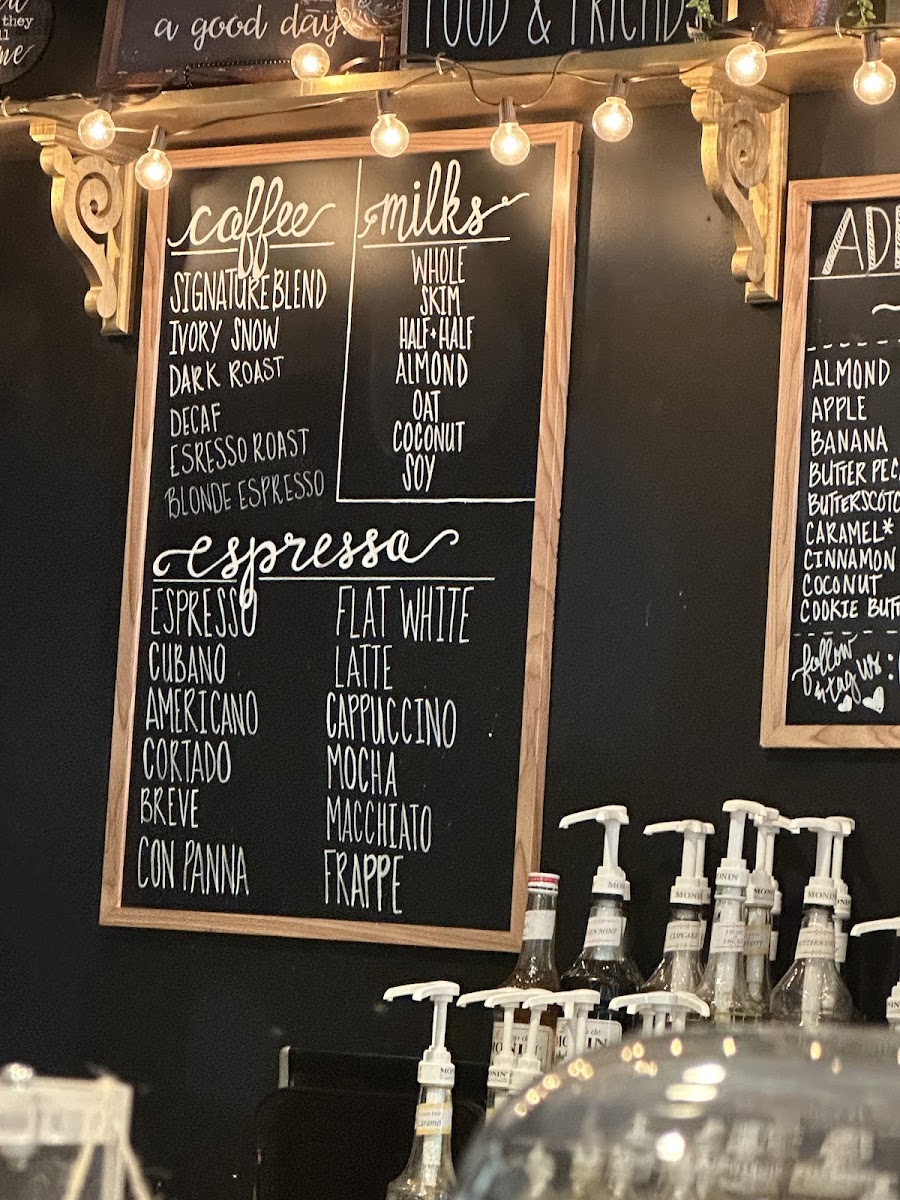 they
a good day.
FOOD & FRIENDS
coffee
SIGNATURE BLEND
IVORY SNOW
DARK ROAST
DECAF
ESRESSO ROAST
BLONDE ESPRESSO
milks
WHOLE
SKIM
HALF+HALF
ALMOND
OAT
COCONUT
SOY
espresso
ESPRESSO
CUBANO
AMERICANO
CORTADO
BREVE
CON PANNA
FLAT WHITE
LATTE
CAPPUCCINO
MOCHA
MACCHIATO
FRAPPE
AD
ALMOND
APPLE
BANANA
BUTTER PEC
BUTTERSCOTC
CARAMEL*
CINNAMON
COCONUT
COOKIE BUTT
follow
+ tag us:
MONIN
MONIN
MONIN
CUPCAKE
Caramel